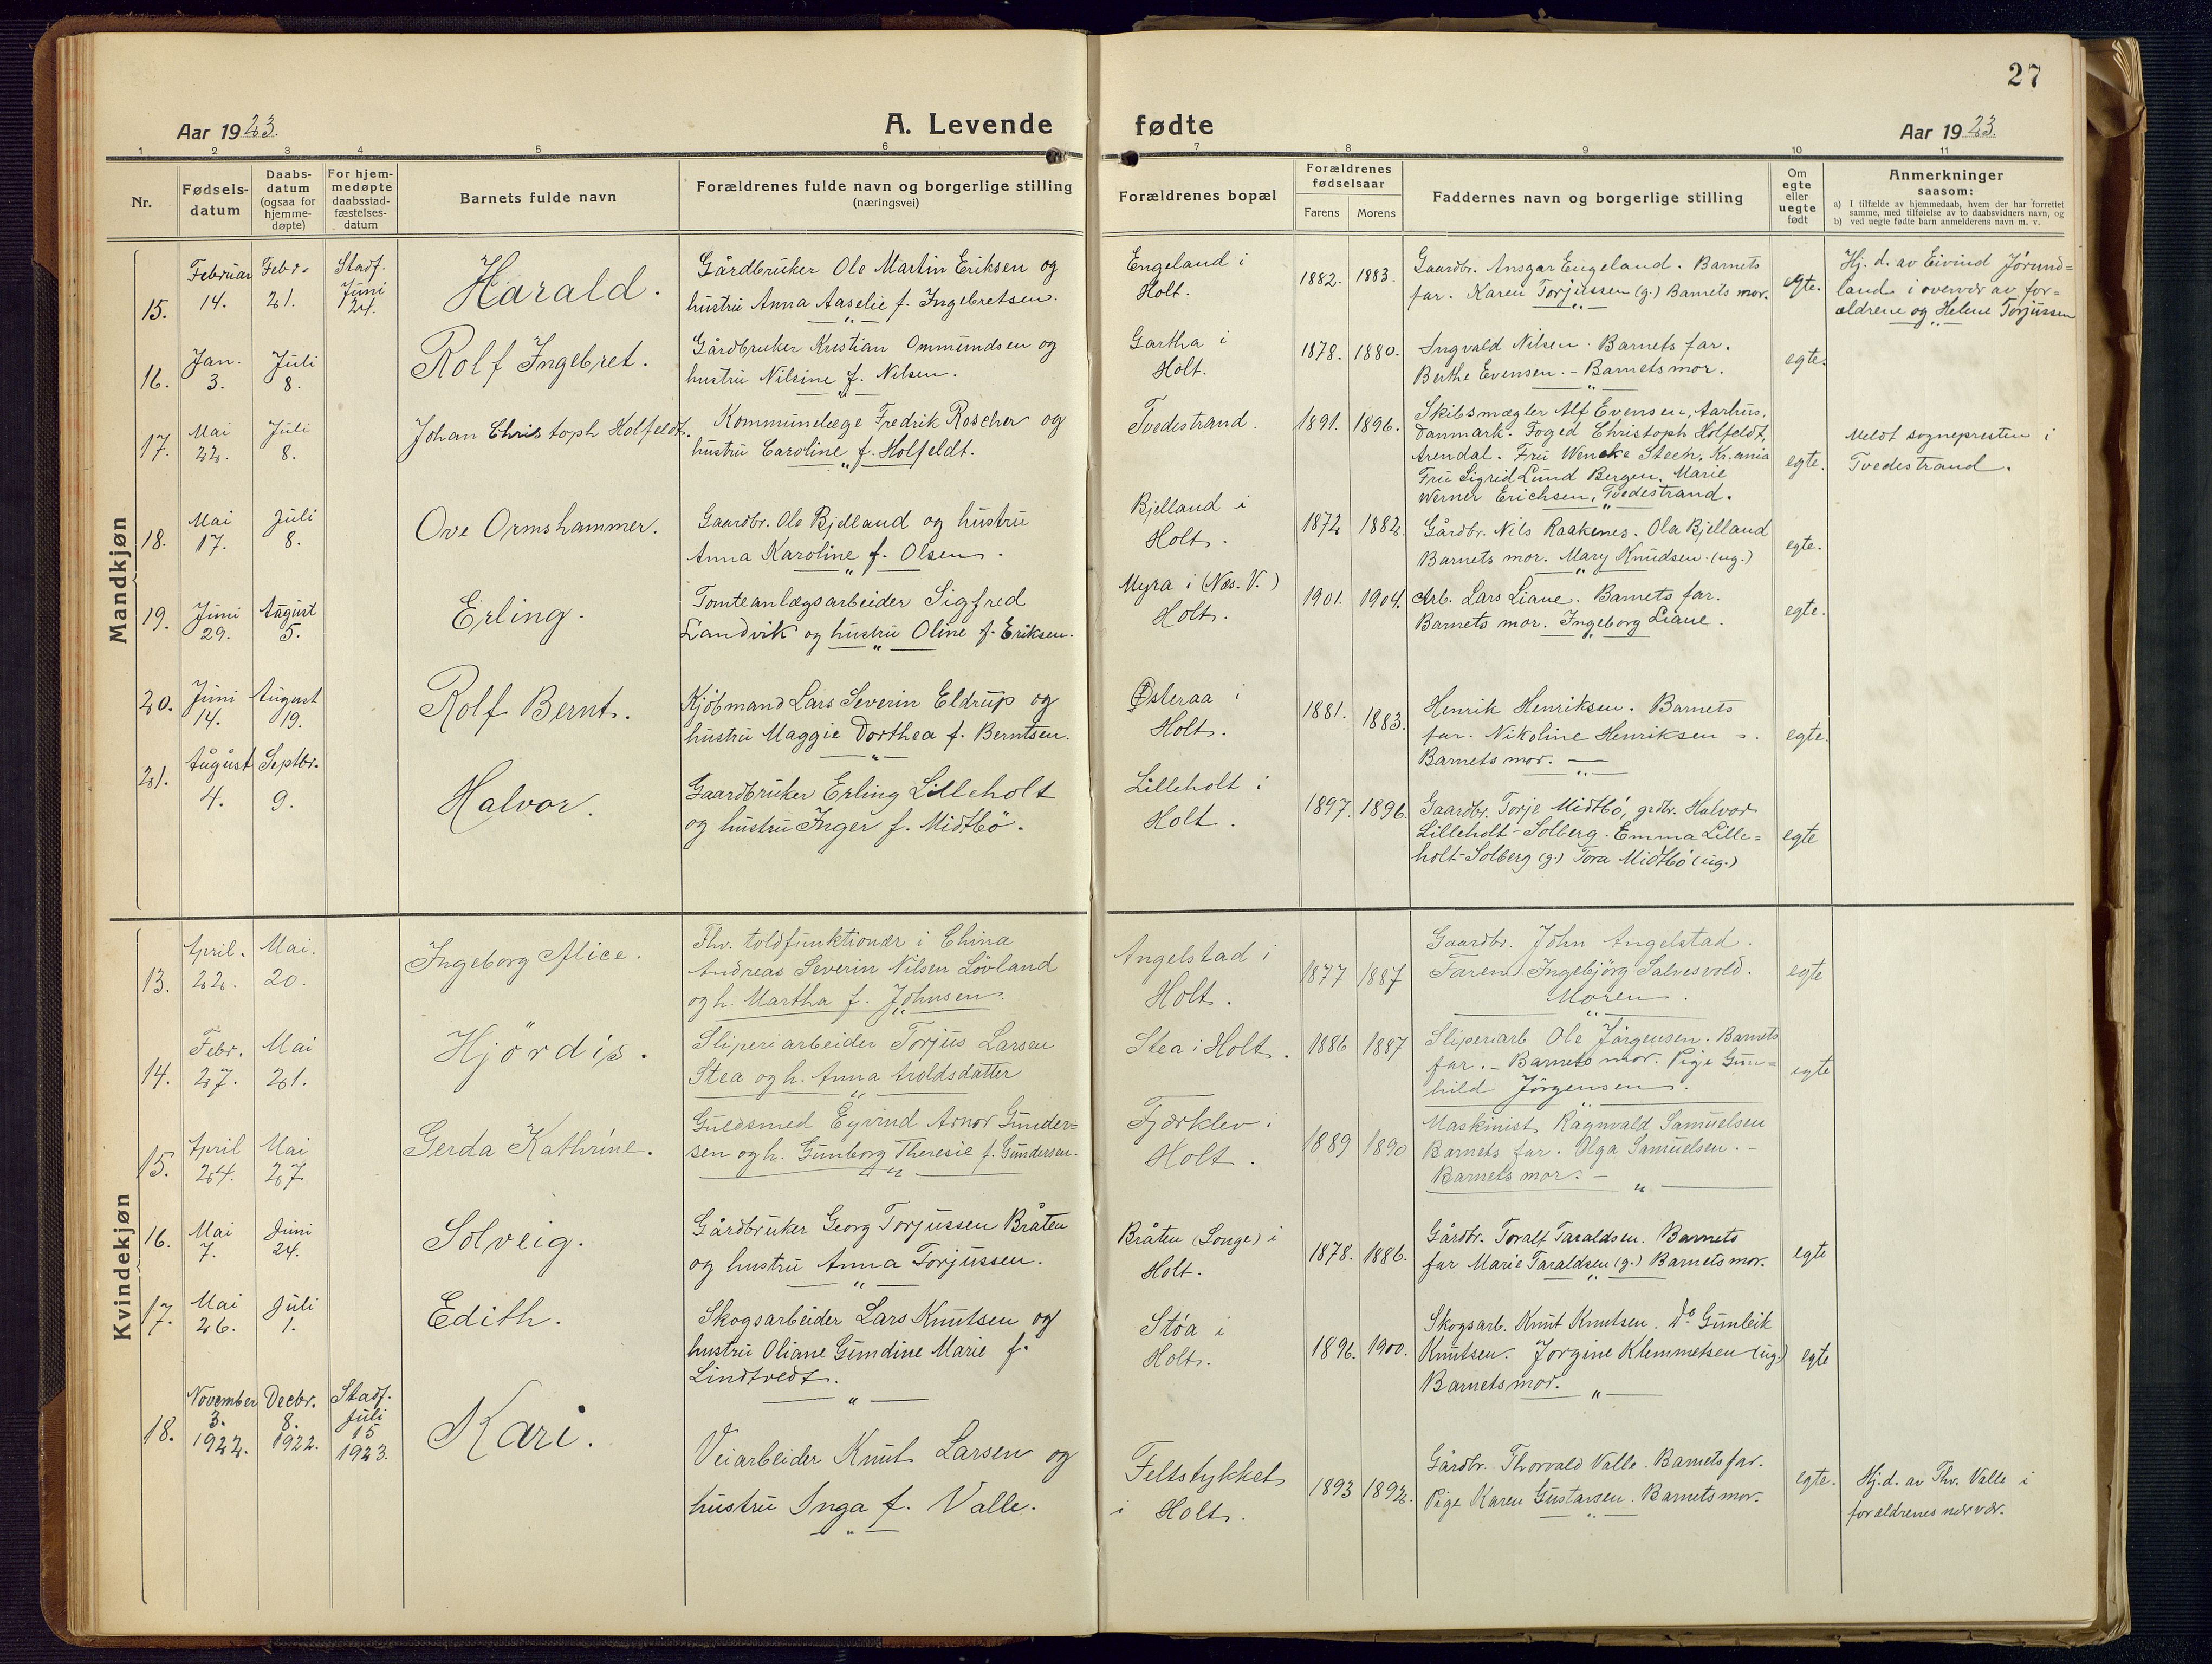 27
Aar 1923.
A. Levende fødte
Aar 1923.
1 2 3 4 5 6 7 8 9 10 11
Nr.
Fødsels-
datum
Daabs-
datum
(ogsaa for
hjemme-
døpte)
For hjem-
medøpte
daabsstad-
fæstelses-
datum
Barnets fulde navn
Forældrenes fulde navn og borgerlige stilling
(næringsvei)
Forældrenes bopæl
Forældrenes
fødselsaar
Farens Morens
Faddernes navn og borgerlige stilling
Om
egte
eller
uegte
født
Anmerkninger
saasom:
a) I tilfælde av hjemmedaab, hvem der har forrettet
samme, med tilføielse av to daabsvidners navn, og
b) ved uegte fødte barn anmelderens navn m. v.
Mandkjøn
15.
Februar
14.
Febr.
21.
Stadf.
Juni
24.
Harald.
Gårdbruker Ole Martin Eriksen og
hustru Anna Aaselie f. Ingebretsen.
Engeland i
Holt.
1882. 1883.
Gaardbr. Ansgar Engeland. Barnets
far. Karen Torjussen (g.) Barnets mor.
egte.
Hj. d. av Eivind Jørund=
land i overvær av for=
ældrene og Helene Torjussen
16.
Jan.
3.
Juli
8.
Rolf Ingebret.
Gårdbruker Kristian Ommundsen og
hustru Nilsine f. Nilsen.
Gartha i
Holt.
1878. 1880.
Ingvald Nilsen. Barnets far.
Berthe Evensen. - Barnets mor.
egte.
17.
Mai
22.
Juli
8.
Johan Christoph Holfeldt.
Kommunelæge Fredrik Roscher og
hustru Caroline f. Holfeldt.
Tvedestrand.
1891. 1896.
Skibsmægler Alf Evensen, Aarhus,
Danmark. Foged Christoph Holfeldt,
Arendal. Fru Wencke Steen, Kr.ania
Fru Sigrid Lund Bergen. Marie
Werner Erichsen, Tvedestrand.
egte.
Meldt sognepresten i
Tvedestrand.
18.
Mai
17.
Juli
8.
Ove Ormshammer.
Gaardbr. Ole Bjelland og hustru
Anna Karoline f. Olsen.
Bjelland i
Holt.
1872 1882.
Gårdbr. Nils Raakenes. Ola Bjelland
Barnets mor. Mary Knudsen. (ug.)
egte.
19.
Juni
29.
August
5.
Erling.
Tomteanlægsarbeider Sigfred
Landvik og hustru Oline f. Eriksen.
Myra i (Næs. V.)
Holt.
1901. 1904.
Arb. Lars Liane. Barnets far.
Barnets mor. Ingeborg Liane.
egte.
20.
Juni
14.
August
19.
Rolf Bernt.
Kjöbmand Lars Severin Eldrup og
hustru Maggie Dorthea f. Berntsen.
Østeraa i
Holt.
1881. 1883.
Henrik Henriksen. Barnets
far. Nikoline Henriksen
Barnets mor.
egte.
21.
August
4.
Septbr.
9.
Halvor.
Gaardbruker Erling Lilleholt
og hustru Inger f. Midtbö.
Lilleholt i
Holt.
1897. 1896.
Gaardbr. Torje Midtbö, grdbr. Halvor
Lilleholt-Solberg. Emma Lille=
holt-Solberg (g.) Tora Midtbö (ug.)
egte
Kvindekjøn
13.
April.
22.
Mai.
20.
Ingeborg Alice.
Fhv. toldfunktionær i China
Andreas Severin Nilsen Lövland
og h. Martha f. Johnsen.
Angelstad i
Holt.
1877 1887
Gaardbr. John Angelstad.
Faren. Ingebjörg Salvesvold.
Moren.
egte
14.
Febr.
27.
Mai
21.
Hjördis.
Sliperiarbeider Torjus Larsen
Stea og h. Anna Aroldsdatter
Stea i Holt.
1886 1887
Sliperiarb Ole Jörgensen. Barnets
far. - Barnets mor. Pige Gun=
hild Jörgensen.
egte
15.
April
24.
Mai
27
Gerda Kathrine.
Guldsmed Eyvind Arnor Gunder=
sen og h. Gunborg Theresie f. Gundersen.
Fjærklev i
Holt.
1889 1890
Maskinist Ragnvald Samuelsen
Barnets far. Olga Samuelsen. -
Barnets mor. -
16.
Mai
7.
Juni
24.
Solveig.
Gårdbruker Georg Torjussen Bråten
og hustru Anna Torjussen.
Bråten (Songe) i
Holt.
1878. 1886.
Gårdbr. Toralf Taraldsen. Barnets
far Marie Taraldsen (g.) Barnets mor.
egte
17.
Mai
26.
Juli
1.
Edith.
Skogsarbeider Lars Knutsen og
hustru Oliane Gundine Marie f.
Lindtvedt.
Støa i
Holt.
1896. 1900.
Skogsarb. Knut Knutsen. Do Gunleik
Knutsen. Jorgine Klemmetsen (ug.)
Barnets mor.
egte
18.
November
3.
1922.
Decbr.
8.
1922.
Stadf.
Juli
15
1923.
Kari.
Veiarbeider Knut Larsen og
hustru Inga f. Valle.
Feltstykket
i Holt.
1893 1892.
Gårdbr. Thorvald Valle. Barnets far.
Pige Karen Gustavsen. Barnets mor.
egte.
Hj. d. av Thv. Valle i
forældrenes nærvær.